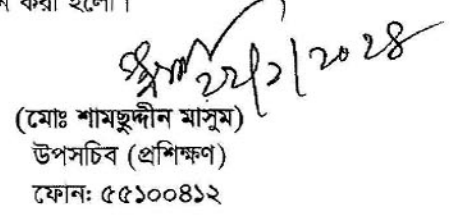 করা হলো।
২২/১/২০২৪
(মোঃ শামছুদ্দীন মাসুম)
উপসচিব (প্রশিক্ষণ)
ফোনঃ ৫৫১০০৪১২